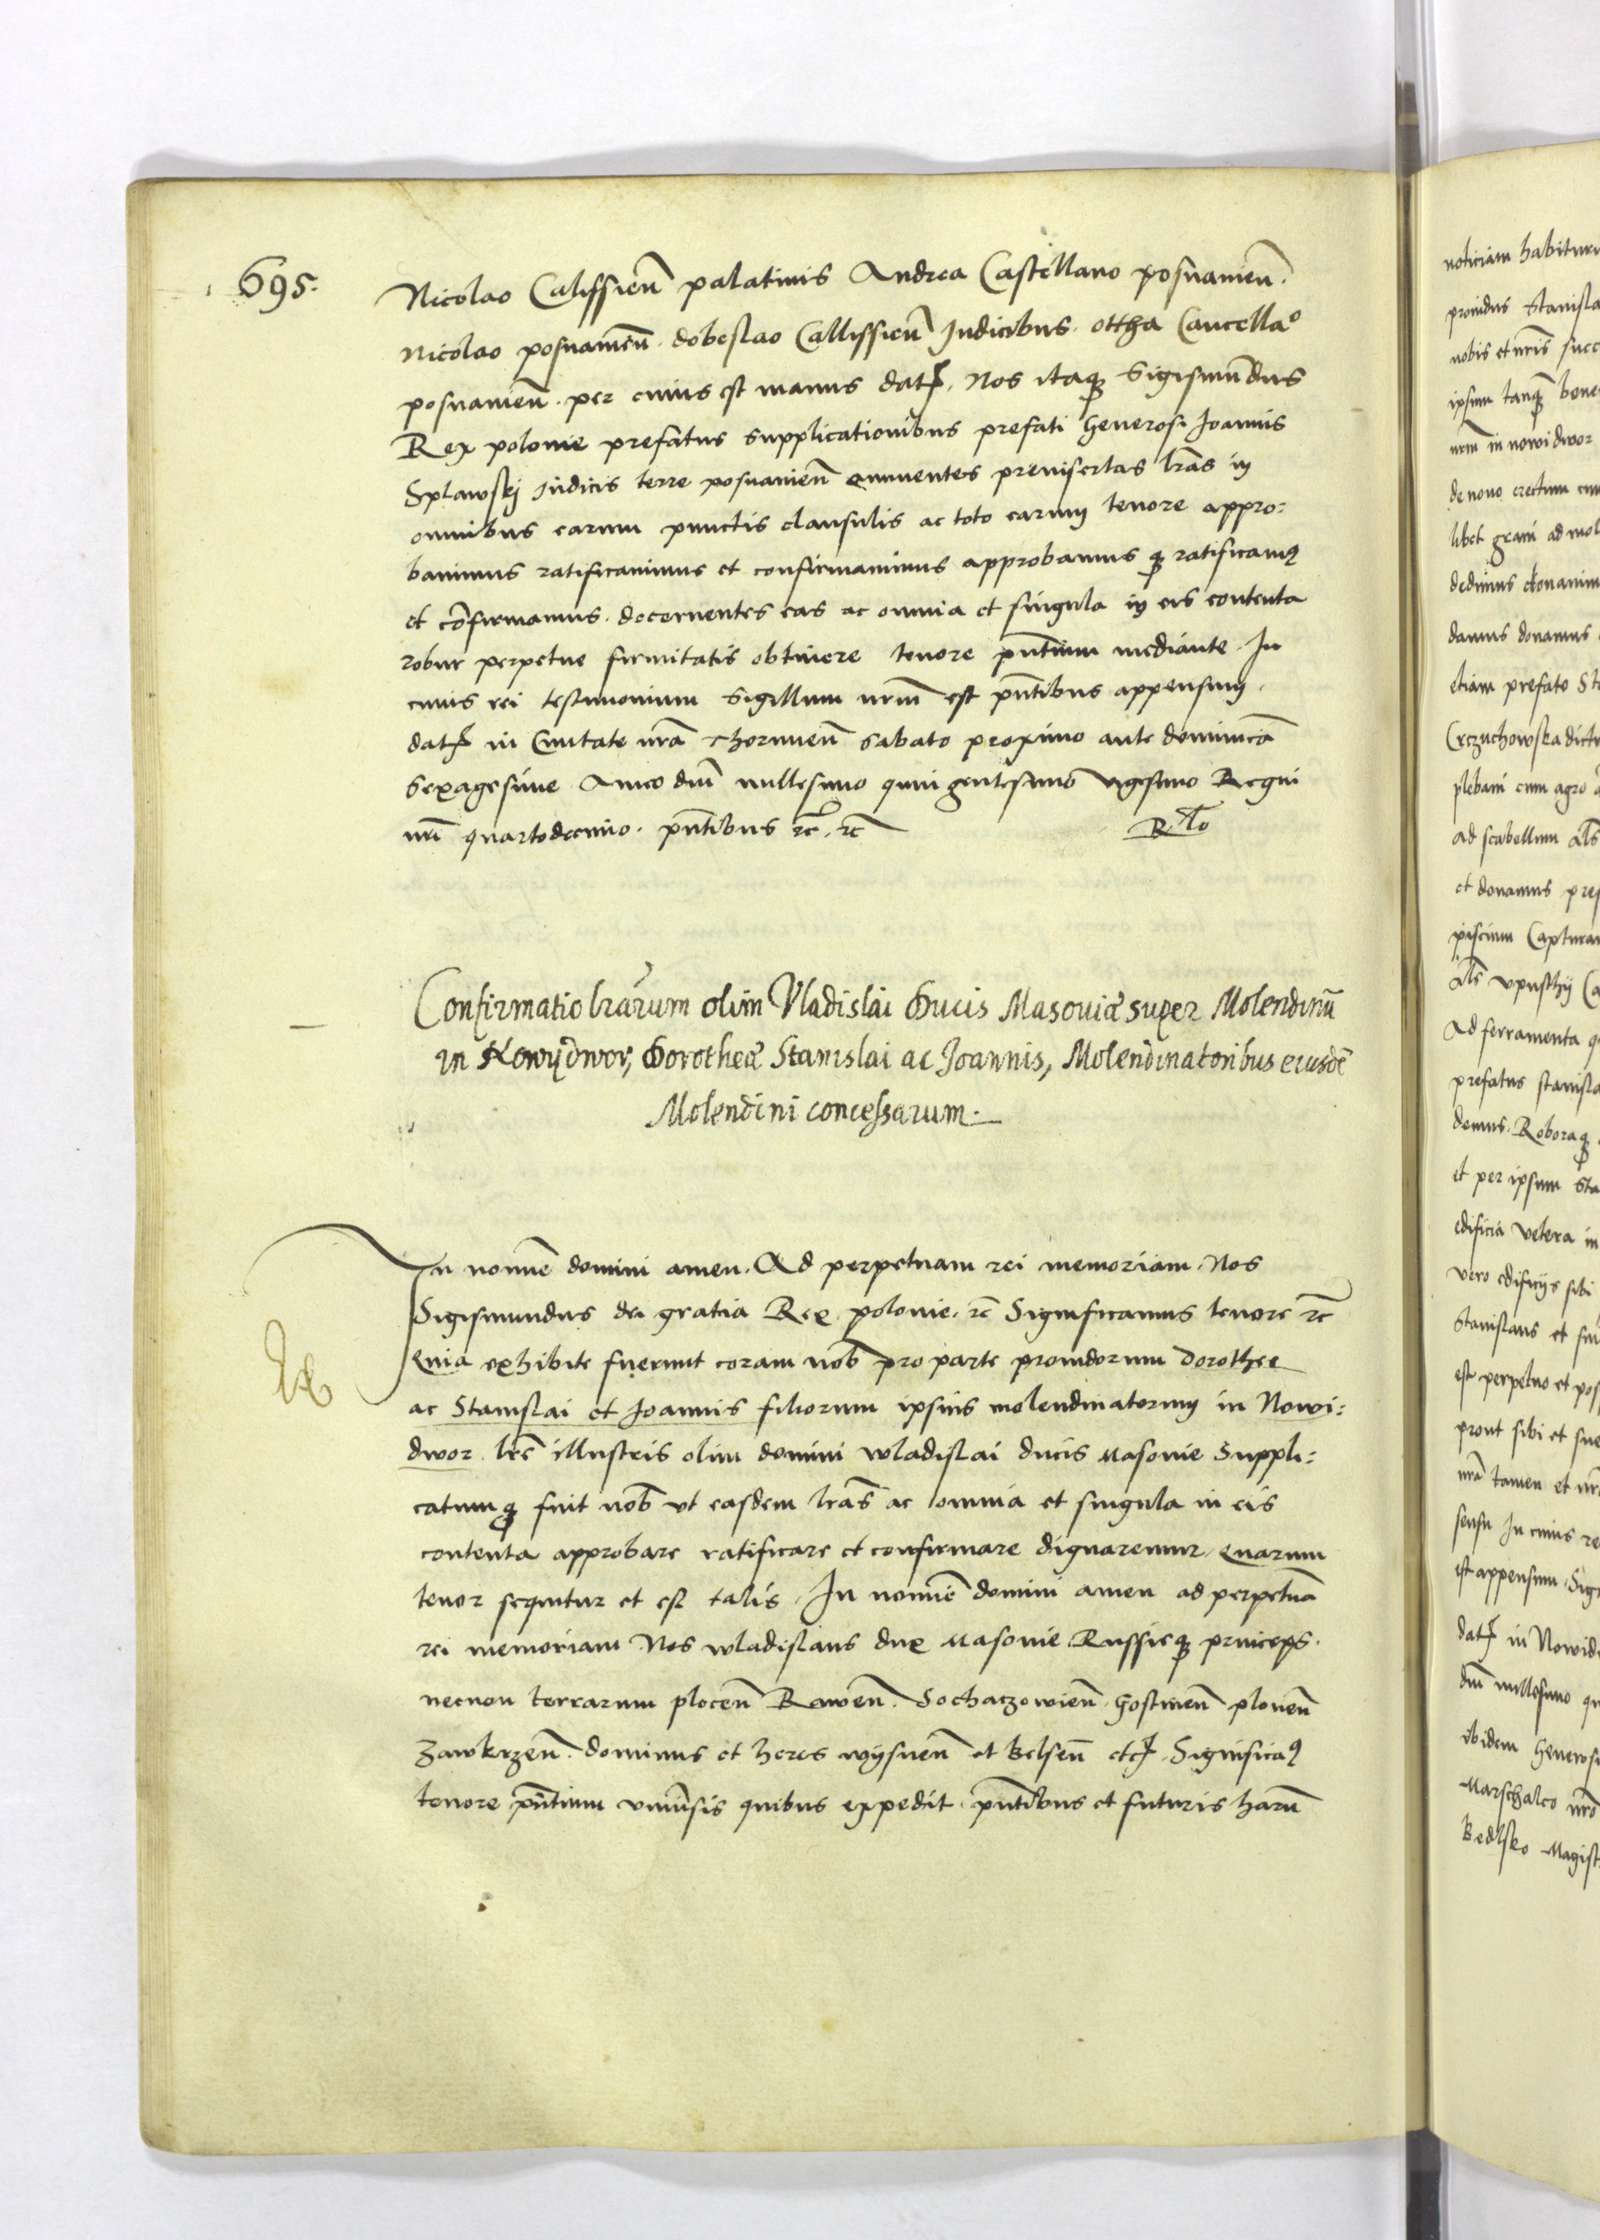 695.
Nicolao Calissien̄ palatinis Andrea Castellano posnanien̄.
Nicolao posnanien̄. dobeslao Callissien̄ Iudicibus. ottha Cancellaᵒ
posnanien̄. per cuius est manus dat̄. Nos itaqꝫ Sigismundus
Rex polonie prefatus supplicationibus prefati Generosi Joannis
Splawskj Iudicis terre posnanien̄ annuentes preinsertas lrās in
omnibus earum punctis clausulis ac toto earum tenore appro:
bauimus ratificauimus et confirmauimus approbamusqꝫ ratificamꝰ
et cōfirmamus. decernentes eas ac omnia et singula in eis contenta
robur perpetue firmitatis obtinere tenore pn̄tium mediante. In
cuius rei testimonium Sigillum nrm̄ est pn̄tibus appensum.
dat̄ in Ciuitate nrā thorunien̄ sabato proximo ante dominicā
sexagesime Anno dm̄ millesimo quingentesimo vigesimo Regni
nrī quartodecimo. pn̄tibus rc̄. rc̄
R. T̄o
Confirmatio lrārum olim Vladislai Ducis Masouiæ super Molendinū
in Nowydwor, Dorotheæ Stanislai ac Joannis, Molendinatoribus eiusdē
Molendini concessarum.
In nomīe domini amen. Ad perpetuam rei memoriam. Nos
Sigismundus dei gratia Rex polonie. rc̄ Significamus tenore rc̄
Quia exhibite fuerunt coram nob̄ pro parte prouidorum Dorothee
ac Stanislai et Joannis filiorum ipsius molendinatorum in Nowi:
dwor. lrē illustris olim domini wladislai ducis Masouie Suppli:
catumqꝫ fuit nob̄ vt easdem lrās ac omnia et singula in eis
contenta approbare ratificare et confirmare dignaremur. Quarum
tenor sequitur et est talis. In nomīe domini amen ad perpetuā
rei memoriam Nos wladislaus dux Masouie Russieqꝫ princeps.
necnon terrarum plocen̄ Rawen̄. Sochaczowien̄. Gostinen̄ plonen̄
Zawkrzen̄. dominus et heres wijsnen̄ et Belsen̄ etc̄. Significaꝰ
tenore pn̄tium vniūsis quibus expedit. pn̄tibus et futuris harū
noticiam habitur
prouidus Stanisla
nobis et nrīs succ
ipsum tanqꝫ bene
nrm̄ in nowidwor
de nouo erectum cum
libet grani ad mol
dedimus donauim
damus donamus
etiam prefato Sta
Crczuchowska dict
plebani cum agro
ad scabellum al̄s
et donamus pref
piscium Captura
al̄s vpusthij Ca
Ad ferramenta q
prefatus stanisla
demus. Roboraqꝫ
et per ipsum Sta
edificia vetera in
vero edificijs sibi
Stanislaus et sui
est perpetuo et pos
prout sibi et sue
nrā tamen et nr
sensu In cuius re
est appensum Sig
dat̄ in Nowid
dm̄ millesimo qu
ibidem Generosi
Marschalco nrō
Bedlsko Magist